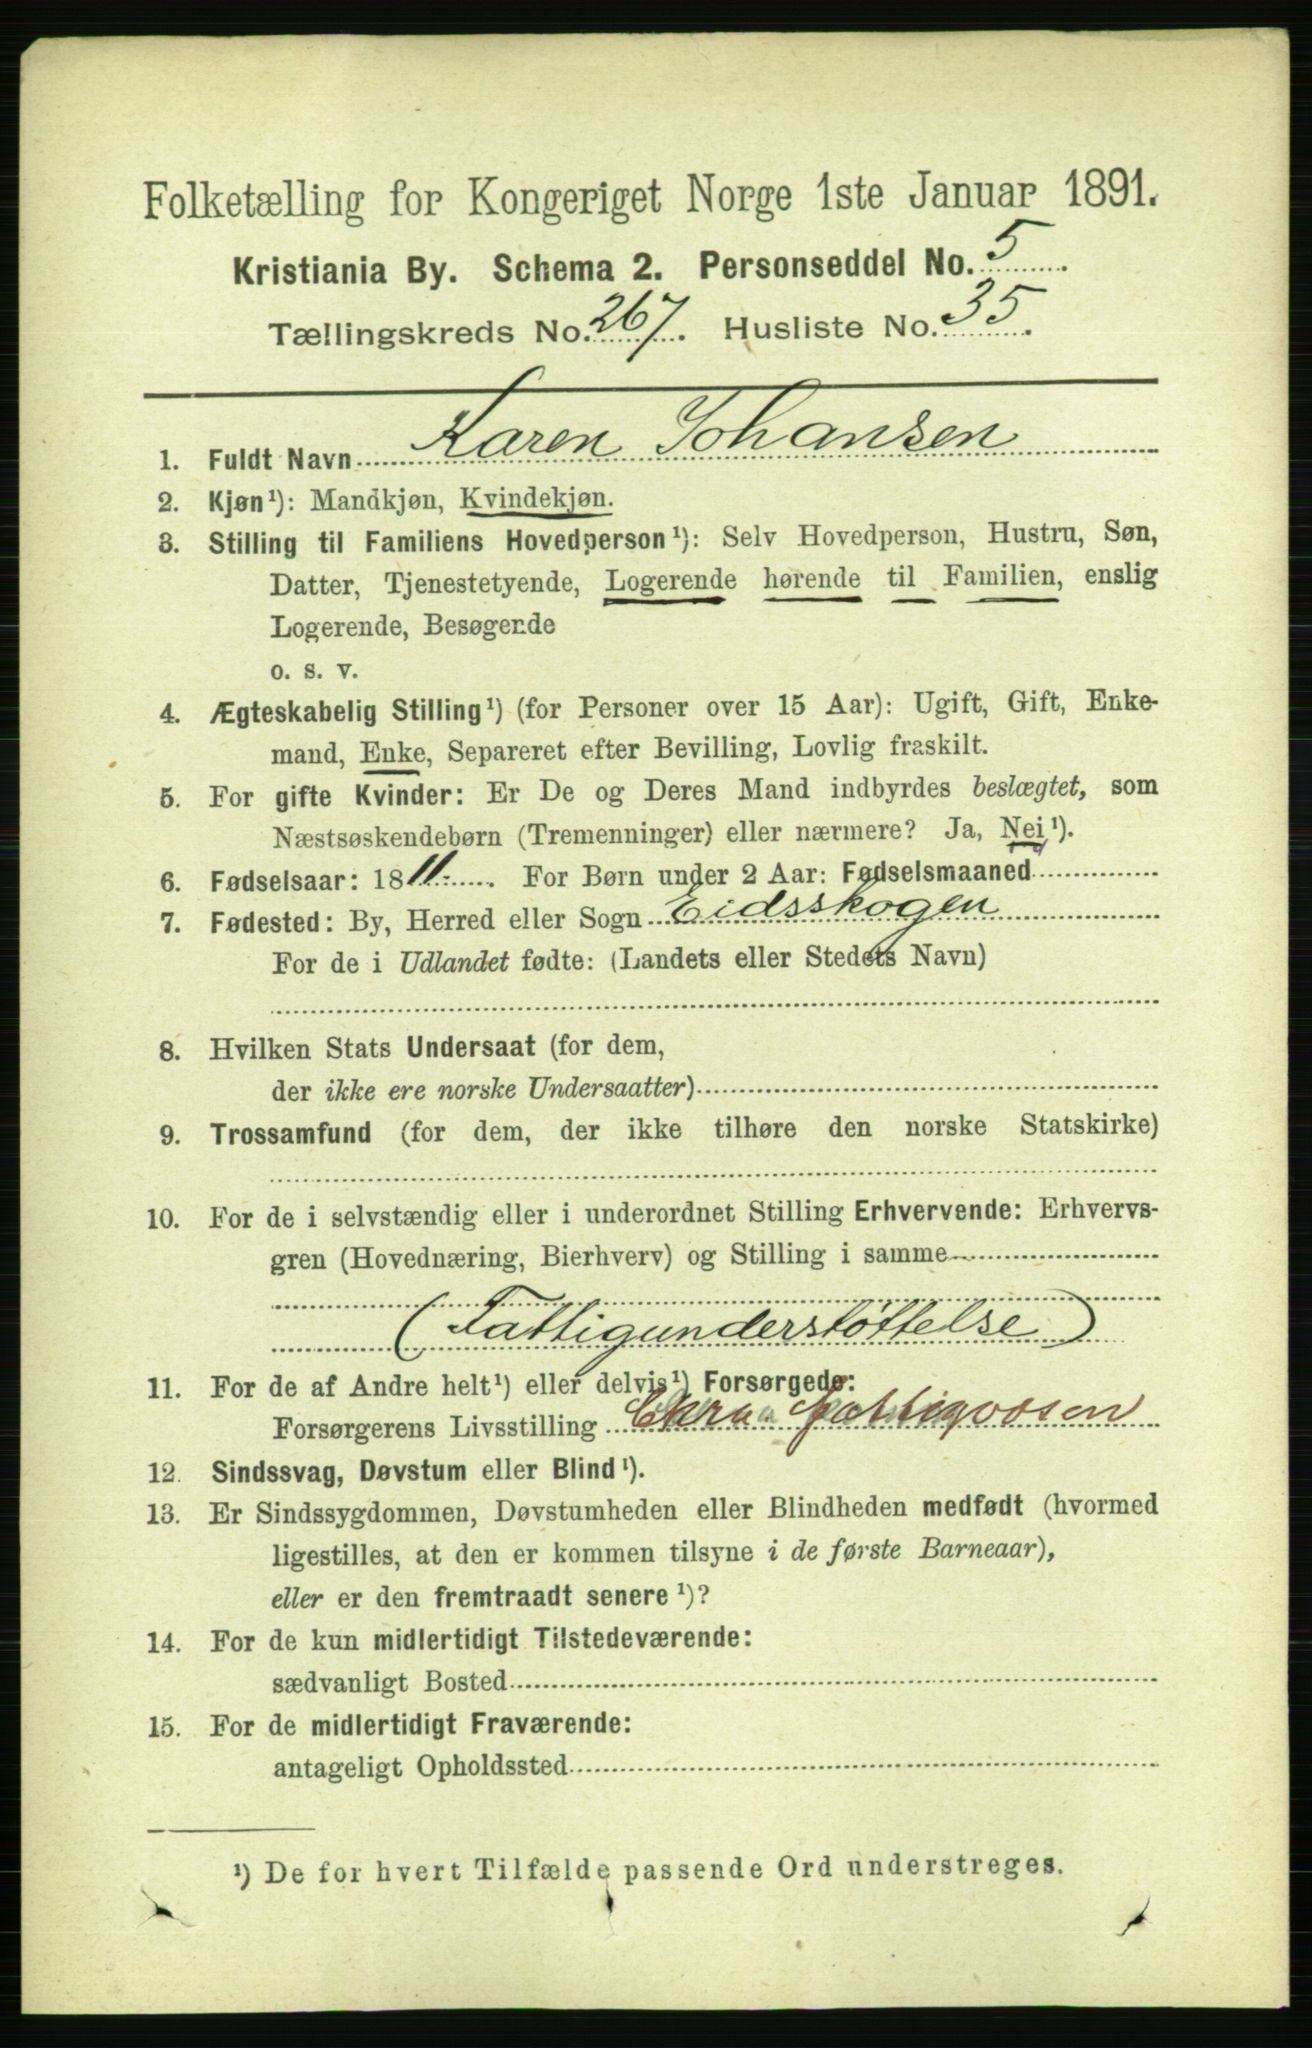 Folketælling for Kongeriget Norge 1ste Januar 1891.
Kristiania By. Schema 2. Personseddel No. 5
Tællingskreds No. 267. Husliste No. 35.
1. Fuldt Navn Karen Johansen
2. Kjøn¹): Mandkjøn, Kvindekjøn.
3. Stilling til Familiens Hovedperson¹): Selv Hovedperson, Hustru, Søn,
Datter, Tjenestetyende, Logerende hørende til Familien, enslig
Logerende, Besøgende
o. s. v.
4. Ægteskabelig Stilling¹) (for Personer over 15 Aar): Ugift, Gift, Enke-
mand, Enke, Separeret efter Bevilling, Lovlig fraskilt.
5. For gifte Kvinder: Er De og Deres Mand indbyrdes beslægtet, som
Næstsøskendebørn (Tremenninger) eller nærmere? Ja, Nei¹).
6. Fødselsaar: 1811. For Børn under 2 Aar: Fødselsmaaned
7. Fødested: By, Herred eller Sogn Eidsskogen
For de i Udlandet fødte: (Landets eller Stedets Navn)
8. Hvilken Stats Undersaat (for dem,
der ikke ere norske Undersaatter)
9. Trossamfund (for dem, der ikke tilhøre den norske Statskirke)
10. For de i selvstændig eller i underordnet Stilling Erhvervende: Erhvervs-
gren (Hovednæring, Bierhverv) og Stilling i samme
(Fattigunderstøttelse)
11. For de af Andre helt¹) eller delvis¹) Forsørgede:
Forsørgerens Livsstilling Chra. Fattigvæsen
12. Sindssvag, Døvstum eller Blind¹).
13. Er Sindssygdommen, Døvstumheden eller Blindheden medfødt (hvormed
ligestilles, at den er kommen tilsyne i de første Barneaar),
eller er den fremtraadt senere¹)?
14. For de kun midlertidigt Tilstedeværende:
sædvanligt Bosted
15. For de midlertidigt Fraværende:
antageligt Opholdssted
¹) De for hvert Tilfælde passende Ord understreges.